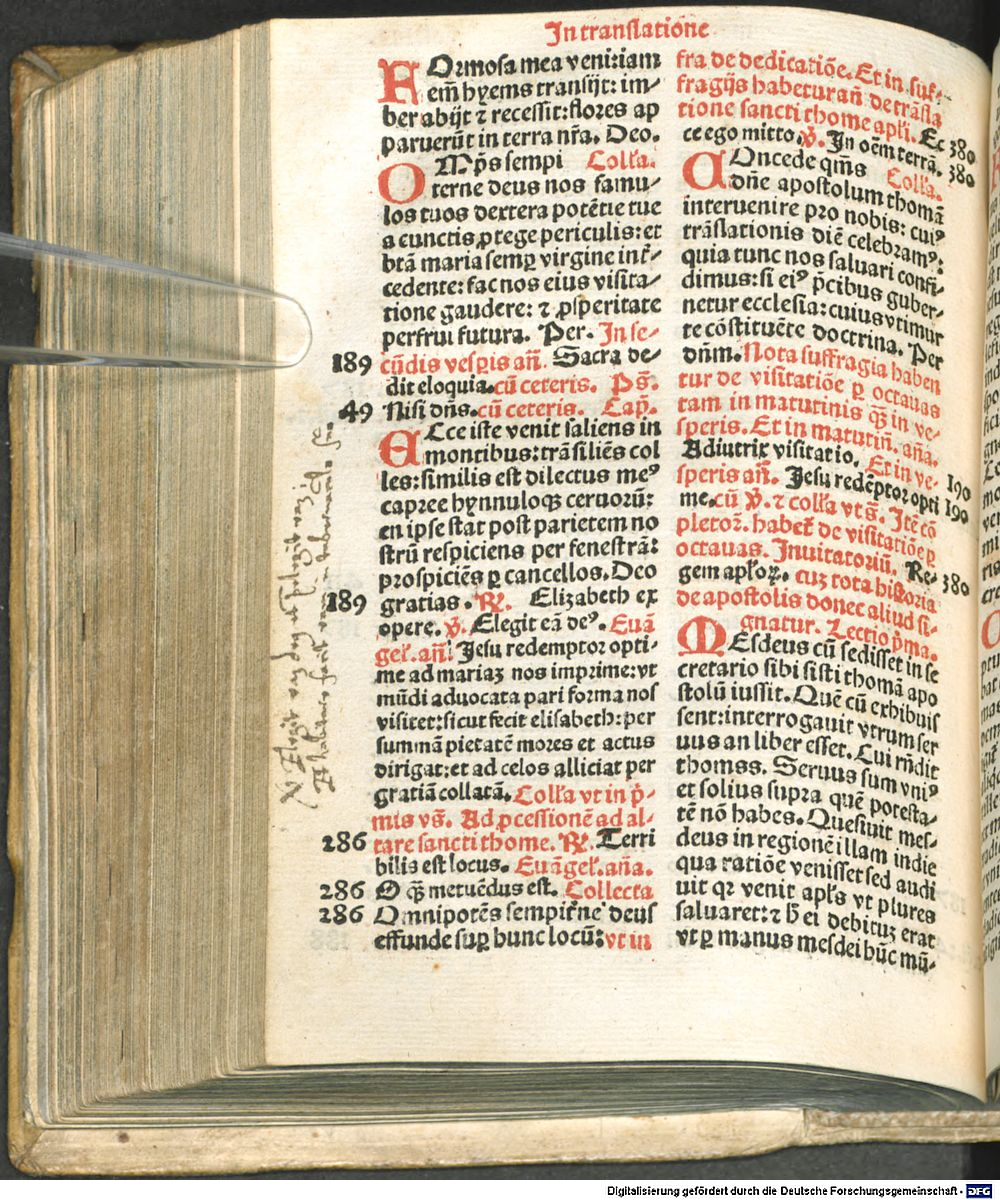 In translatiōne
FOrmosa mea veni: iam
em̄ hyems transijt: im-
ber abijt ⁊ recessit: flores ap
paruerūt in terra nr̄a. Deo.
OMp̄s sempi Coll'a.
terne deus nos famu-
los tuos dextera potētie tue
a cunctis ꝓtege periculis: et
btā maria semꝑ virgine int̄-
cedente: fac nos eius visita-
tione gaudere: ⁊ ꝓsperitate
perfrui futura. Per. In se-
189 cūdis vesꝑis añ. Sacra de-
dit eloquia. cū ceteris. Ps̄.
49 Nisi dn̄s. cū ceteris. Cap̄.
ECce iste venit saliens in
montibus: trāsiliēs col
les: similis est dilectus me⁹
capree hynnuloqꝫ ceruorū:
en ipse stat post parietem no
strū respiciens per fenestrā:
prospiciēs ꝑ cancellos. Deo
189 gratias. ℟. Elizabeth ex
opere. ℣. Elegit eā de⁹. Euā
gel'. añ. Jesu redemptor opti-
me ad mariaꝫ nos imprime: vt
mūdi aduocata pari forma nos
visitet: sicut fecit elisabeth: per
summā pietatē mores et actus
dirigat: et ad celos alliciat per
gratiā collatā. Coll'a vt in p̄-
mis vs̄. Ad ꝓcessionē ad al-
286 tare sancti thome. ℟. Terri
bilis est locus. Euāgel'. aña.
286 O qꝫ metuēdus est. Collecta
286 Omnipotēs sempit̄ne deus
effunde suꝑ hunc locū: vt in
fra de dedicatiōe. Et in suf-
fragijs habetur añ de trāsla
tione sancti thome apl'i. Ec 380
ce ego mitto. ℣. In oēm terrā. 380
COncede qm̄s Coll'a.
dn̄e apostolum thomā
interuenire pro nobis: cui⁹
trāslationis diē celebram⁹:
quia tunc nos saluari confi-
dimus: si ei⁹ p̄cibus guber-
netur ecclesia: cuius vtimur
te cōstituēte doctrina. Per
dn̄m. Nota suffragia haben
tur de visitatiōe ꝑ octauas
tam in matutinis qꝫ in ve-
speris. Et in matutiñ. aña.
Adiutrix visitatio. Et in ve- 190
speris añ. Jesu redēptor opti 190
me. cū ℣. ⁊ coll'a vt s̄. Itē cō
pletoꝝ. habet̄ de visitatiōe ꝑ
octauas. Inuitatoriū. Re- 380
gem apl'oꝝ. cuꝫ tota historia
de apostolis donec aliud si-
gnatur. Lectio p̄ma.
MEsdeus cū sedisset in se
cretario sibi sisti thomā apo
stolū iussit. Quē cū exhibuis
sent: interrogauit vtrum ser
uus an liber esset. Cui rn̄dit
thomss. Seruus sum vni⁹
et solius supra quē potesta-
tē nō habes. Quesiuit mes-
deus in regionē illam indie
qua ratiōe venisset sed audi
uit qꝛ venit apl's vt plures
saluaret: ⁊ h̄ ei debituꝫ erat
vt ꝑ manus mesdei hūc mū-
Digitalisierung gefördert durch die Deutsche Forschungsgemeinschaft - DFG